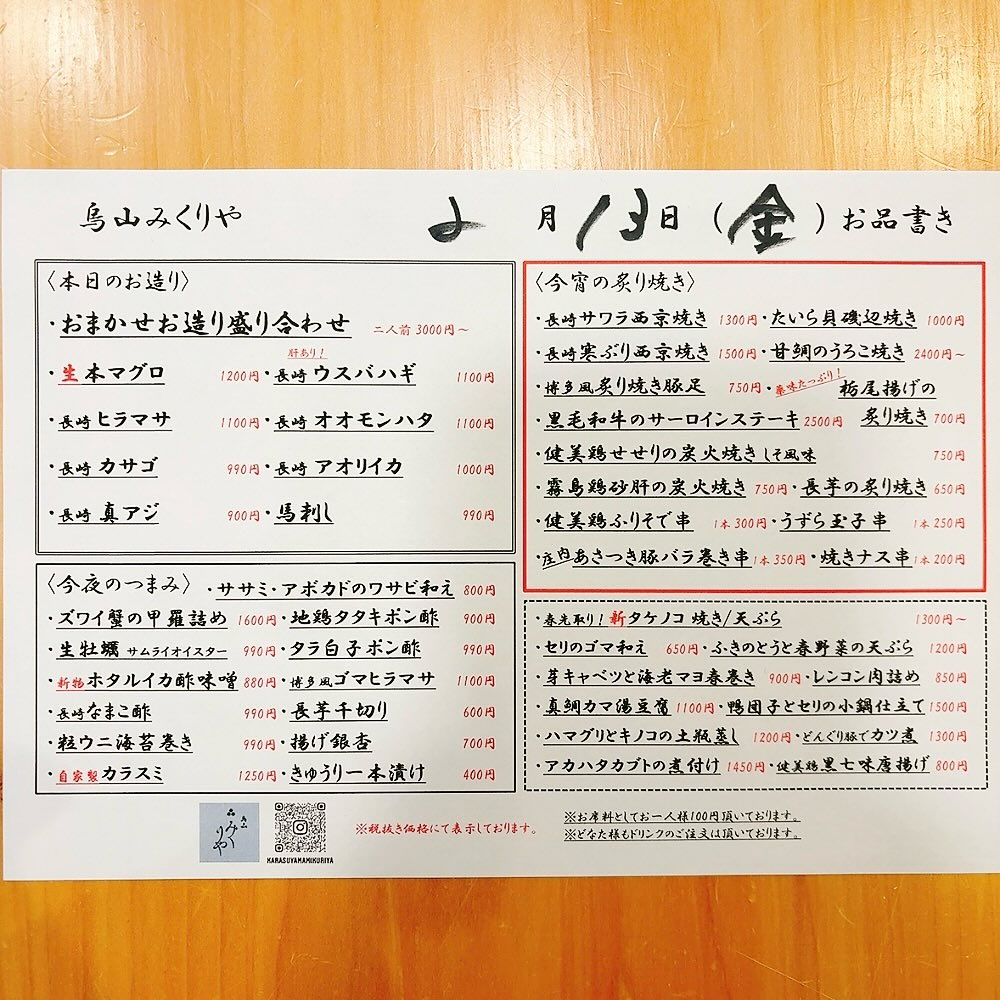 烏山みくりや 2月13日(金)お品書き
〈本日のお造り〉
・おまかせお造り盛り合わせ 二人前 3000円~
肝あり!
・生本マグロ 1200円・長崎 ウスバハギ 1100円
・長崎 ヒラマサ 1100円・長崎 オオモンハタ 1100円
・長崎 カサゴ 990円・長崎 アオリイカ 1000円
・長崎 真アジ 900円・馬刺し 990円
〈今夜のつまみ〉 ・ササミ・アボカドのワサビ和え 800円
・ズワイ蟹の甲羅詰め 1600円・地鶏タタキポン酢 900円
・生牡蠣 サムライオイスター 990円・タラ白子ポン酢 990円
・新物ホタルイカ酢味噌 880円・博多風ゴマヒラマサ 1100円
・長崎なまこ酢 990円・長芋千切り 600円
・粒ウニ海苔巻き 990円・揚げ銀杏 700円
・自家製カラスミ 1250円・きゅうり一本漬け 400円
〈今宵の炙り焼き〉
・長崎サワラ西京焼き 1300円・たいら貝磯辺焼き 1000円
・長崎寒ぶり西京焼き 1500円・甘鯛のうろこ焼き 2400円~
・博多風炙り焼き豚足 750円・薬味たっぷり!栃尾揚げの
・黒毛和牛のサーロインステーキ 2500円 炙り焼き 700円
・健美鶏せせりの炭火焼き しそ風味 750円
・霧島鶏砂肝の炭火焼き 750円・長芋の炙り焼き 650円
・健美鶏ふりそで串 1本 300円・うずら玉子串 1本 250円
・庄内あさつき豚バラ巻き串 1本 350円・焼きナス串 1本 200円
・春先取り!新タケノコ 焼き/天ぷら 1300円~
・セリのゴマ和え 650円・ふきのとうと春野菜の天ぷら 1200円
・芽キャベツと海老マヨ春巻き 900円・レンコン肉詰め 850円
・真鯛カマ湯豆腐 1100円・鴨団子とセリの小鍋仕立て 1500円
・ハマグリとキノコの土瓶蒸し 1200円・どんぐり豚でカツ煮 1300円
・アカハタカブトの煮付け 1450円・健美鶏黒七味唐揚げ 800円
みくりや
KARASUYAMAMIKURIYA
※税抜き価格にて表示しております。
※お席料としてお一人様100円頂いております。
※どなた様もドリンクのご注文は頂いております。